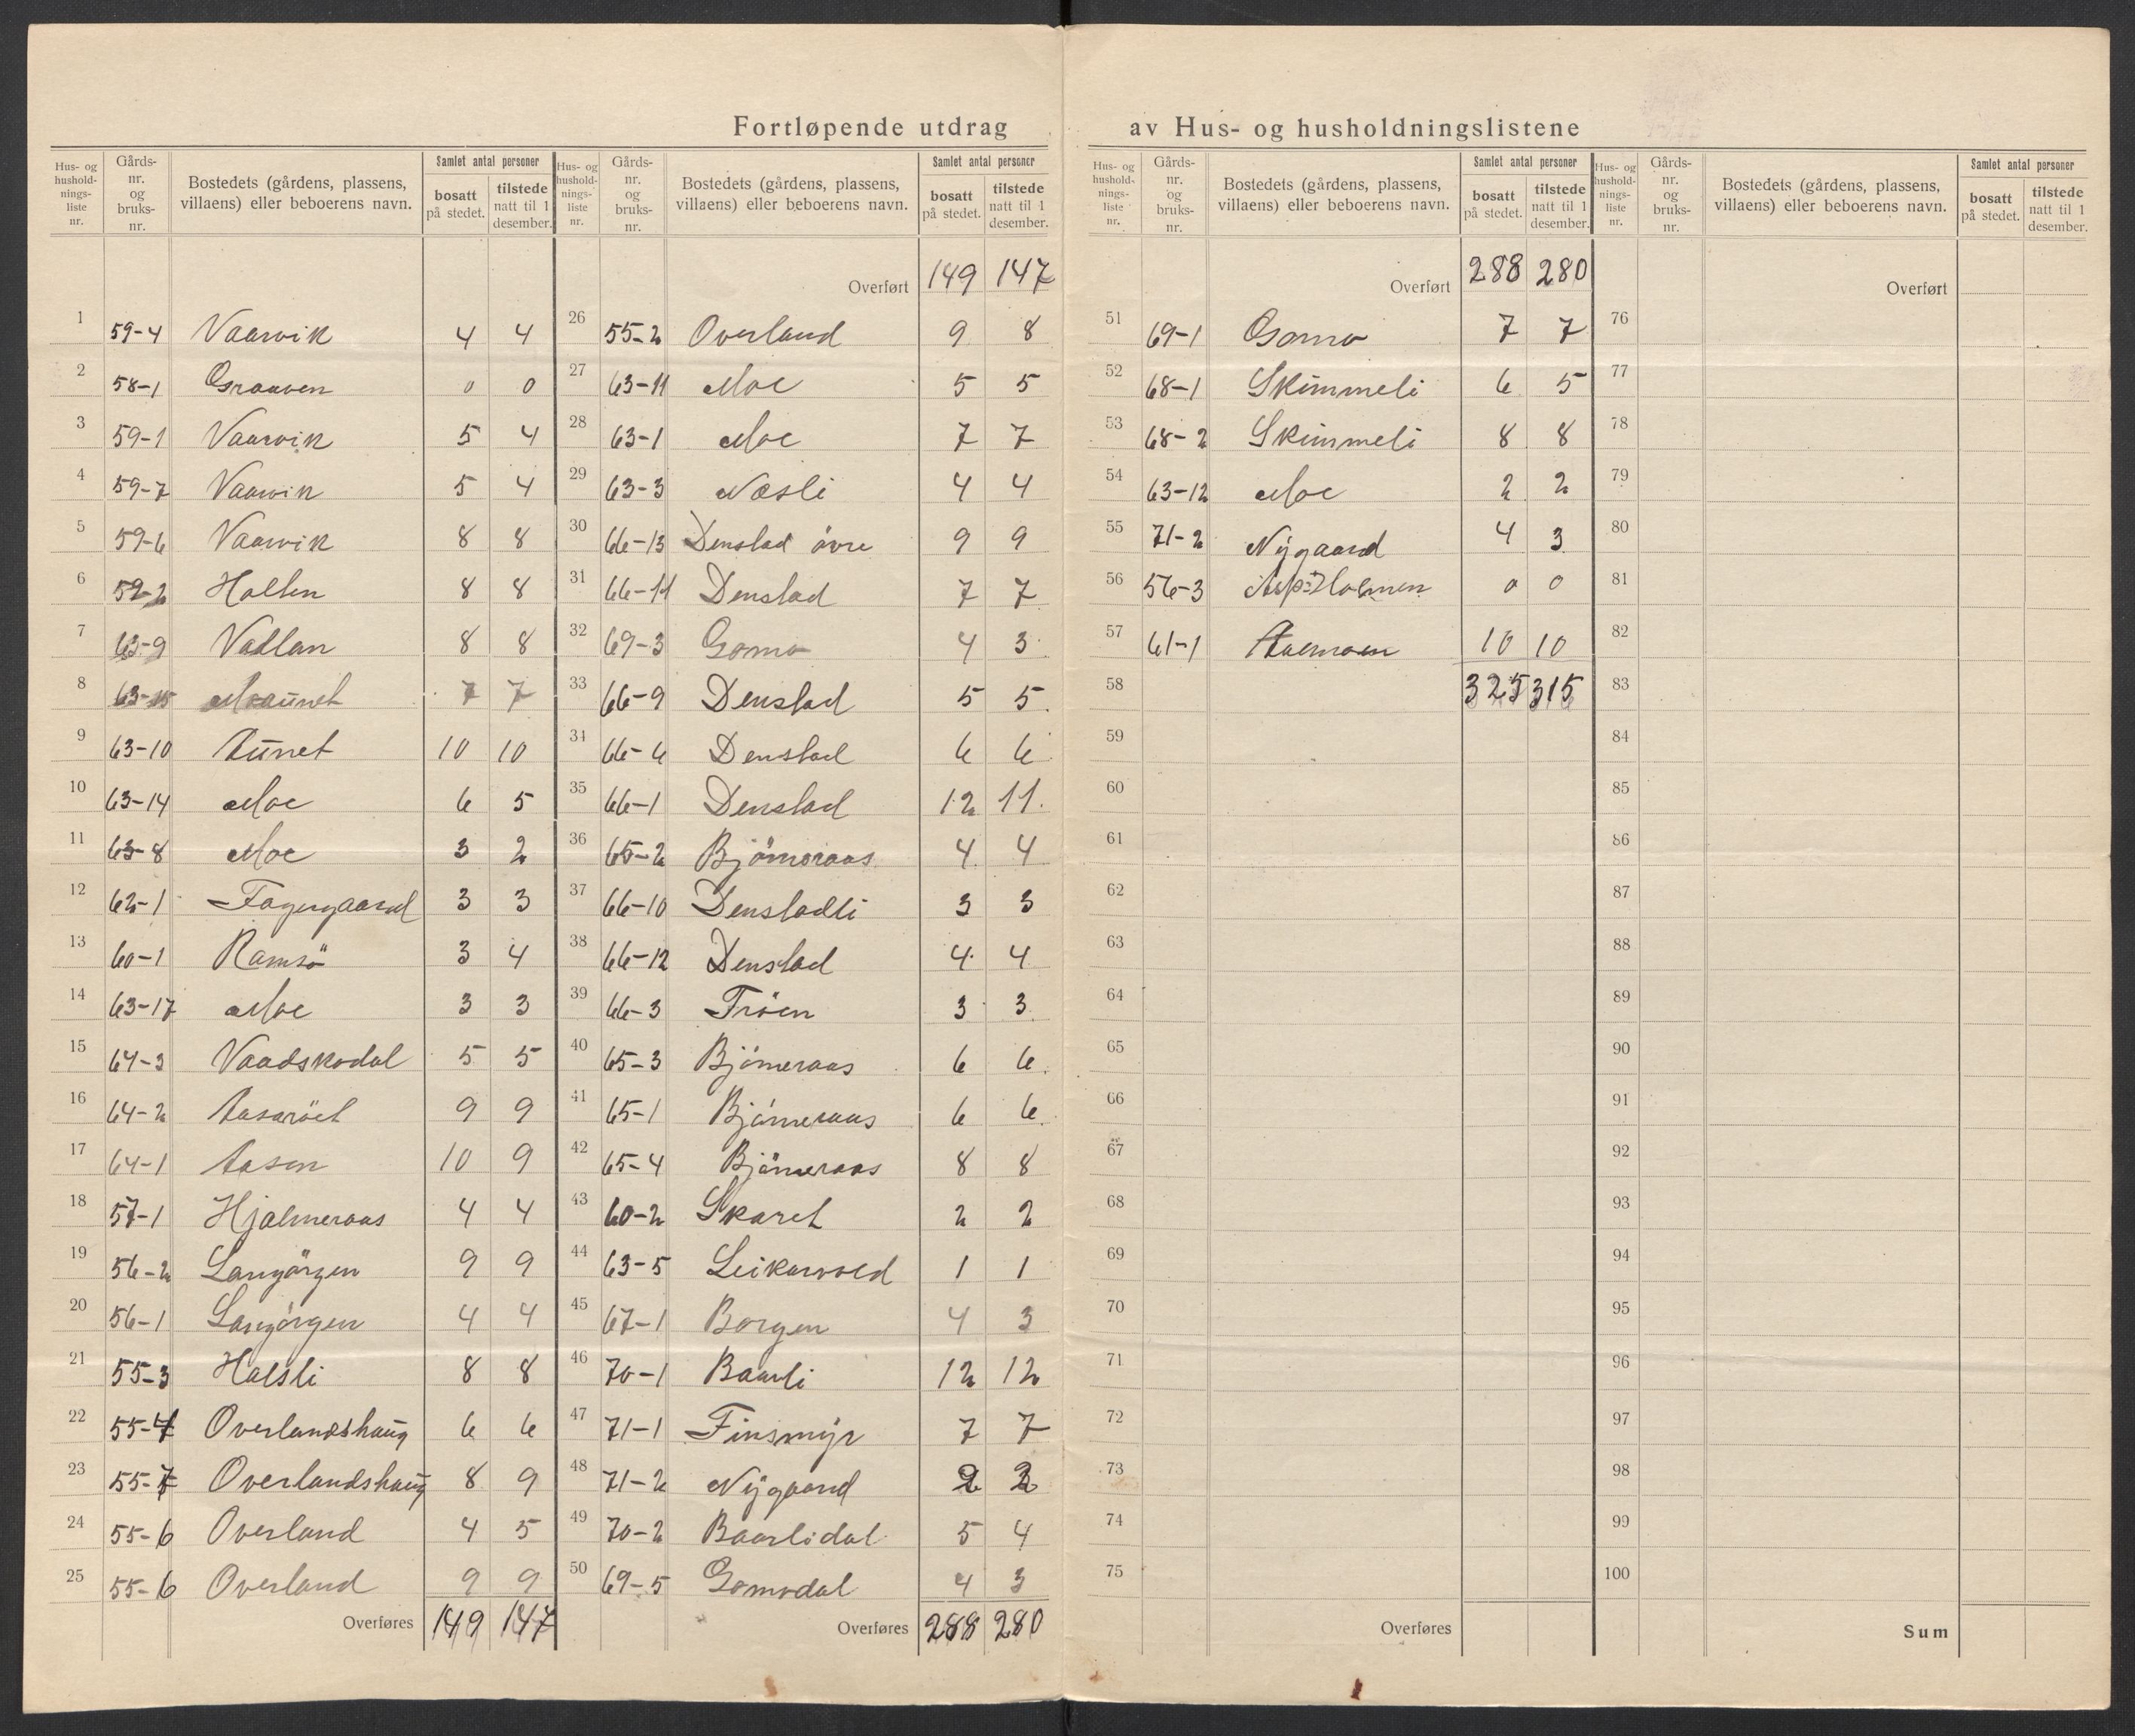 Fortløpende utdrag av Hus- og husholdningslistene
Hus- og husholdningsliste nr. | Gårds-nr. og bruks-nr. | Bostedets (gårdens, plassens, villaens) eller beboerens navn. | Samlet antal personer | bosatt på stedet. | tilstede natt til 1 desember.
1 59-4 Vaarvik 4 4
2 58-1 Graaven 0 0
3 59-1 Vaarvik 5 4
4 59-7 Vaarvik 5 4
5 59-6 Vaarvik 8 8
6 59-2 Halten 8 8
7 63-9 Vadlan 8 8
8 63-15 Moaunet 7 7
9 63-10 Aunet 10 10
10 63-14 Moe 6 5
11 63-8 Moe 3 2
12 62-1 Fagergaard 3 3
13 60-1 Ramsö 3 4
14 63-17 Moe 3 3
15 64-3 Vaadskodal 5 5
16 64-2 Aasaröet 9 9
17 64-1 Aasen 10 9
18 57-1 Hjalmeraas 4 4
19 56-2 Langörgen 9 9
20 56-1 Langörgen 4 4
21 55-3 Halsli 8 8
22 55-4 Overlandshaug 6 6
23 55-7 Overlandshaug 8 9
24 55-6 Overland 4 5
25 55-6 Overland 9 9
Overføres 149 147
Hus- og husholdningsliste nr. | Gårds-nr. og bruks-nr. | Bostedets (gårdens, plassens, villaens) eller beboerens navn. | Samlet antal personer | bosatt på stedet. | tilstede natt til 1 desember.
Overført 149 147
26 55-2 Overland 9 8
27 63-11 Moe 5 5
28 63-1 Moe 7 7
29 63-3 Næsli 4 4
30 66-13 Denstad övre 9 9
31 66-11 Denstad 7 7
32 69-3 Gomo 4 3
33 66-9 Denstad 5 5
34 66-6 Denstad 6 6
35 66-1 Denstad 12 11
36 65-2 Björneraas 4 4
37 66-10 Denstadli 3 3
38 66-12 Denstad 4 4
39 66-3 Tröen 3 3
40 65-3 Björneraas 6 6
41 65-1 Björneraas 6 6
42 65-4 Björneraas 8 8
43 60-2 Skaret 2 2
44 63-5 Leikarvold 1 1
45 67-1 Borgen 4 3
46 70-1 Baarli 12 12
47 71-1 Finsmyr 7 7
48 71-2 Nygaard 2 2
49 70-2 Baarlidal 5 4
50 69-5 Gomodal 4 3
Overføres 288 280
Hus- og husholdningsliste nr. | Gårds-nr. og bruks-nr. | Bostedets (gårdens, plassens, villaens) eller beboerens navn. | Samlet antal personer | bosatt på stedet. | tilstede natt til 1 desember.
Overført 288 280
51 69-1 Gomo 7 7
52 68-1 Skimmeli 6 5
53 68-2 Skimmeli 8 8
54 63-12 Moe 2 2
55 71-2 Nygaard 4 3
56 56-3 Asp-Holmen 0 0
57 61-1 Aalmoen 10 10
58 325 315
59
60
61
62
63
64
65
66
67
68
69
70
71
72
73
74
75
Overføres
Hus- og husholdningsliste nr. | Gårds-nr. og bruks-nr. | Bostedets (gårdens, plassens, villaens) eller beboerens navn. | Samlet antal personer | bosatt på stedet. | tilstede natt til 1 desember.
Overført
76
77
78
79
80
81
82
83
84
85
86
87
88
89
90
91
92
93
94
95
96
97
98
99
100
Sum